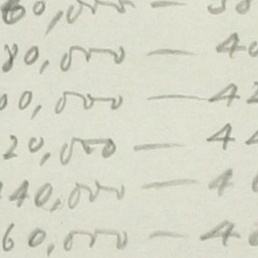 60,000 — 38
80,000 — 40
00,000 — 42
20,000 — 44
40,000 — 4
60,000 — 48